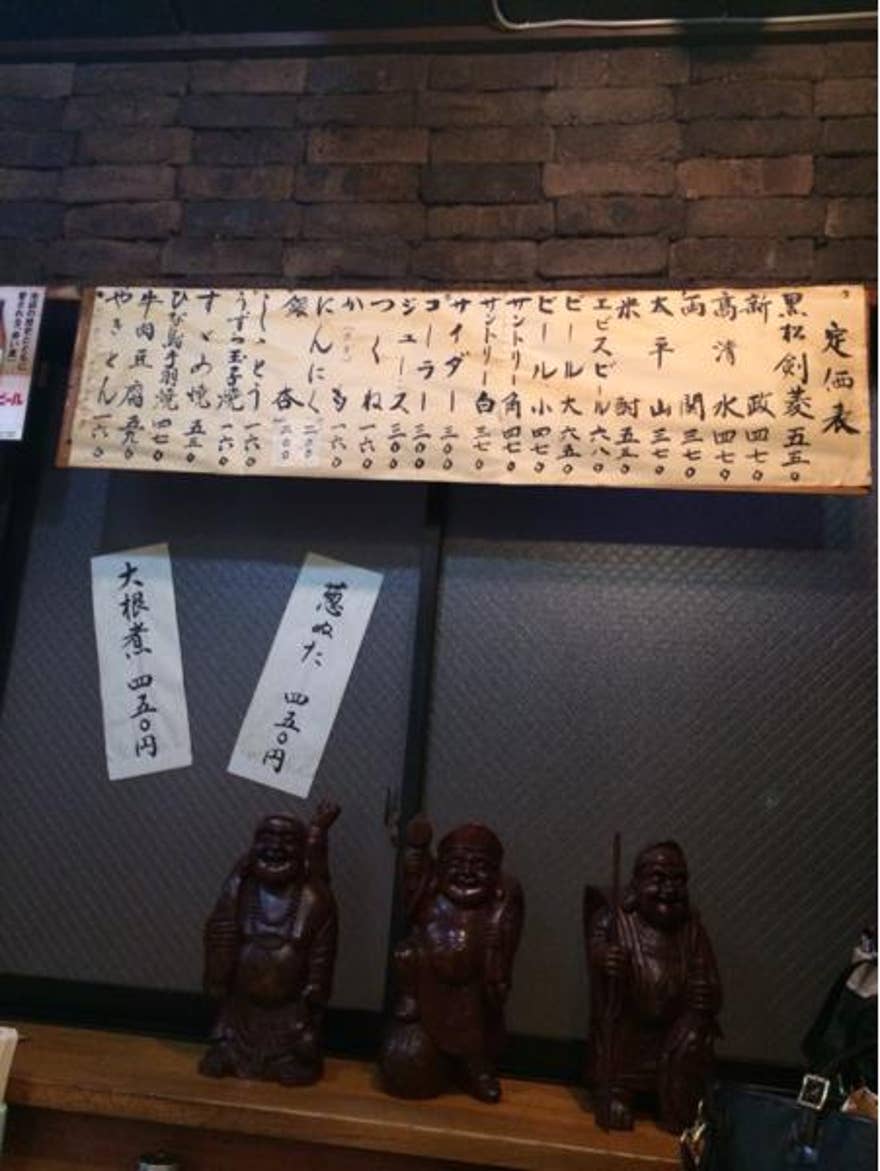 定価表
黒松剣菱 五五〇
新政 四七〇
高清水 四七〇
両関 三七〇
太平山 三七〇
米酎 五五〇
エビスビール 六八〇
ビール大 六五〇
ビール小 四七〇
サントリー角 四七〇
サントリー白 三七〇
サイダー 三〇〇
コーラ 三〇〇
ジュース 三〇〇
つくね 一六〇
かも 一六〇
にんにく 二〇〇
銀杏 二〇〇
ししとう 一六〇
うずら玉子焼 一六〇
すゞめ焼 五五〇
ひな鳥手羽焼 四七〇
牛肉豆腐
やきとん 一六〇
葱ぬた 四五〇円
大根煮 四五〇円
ビール